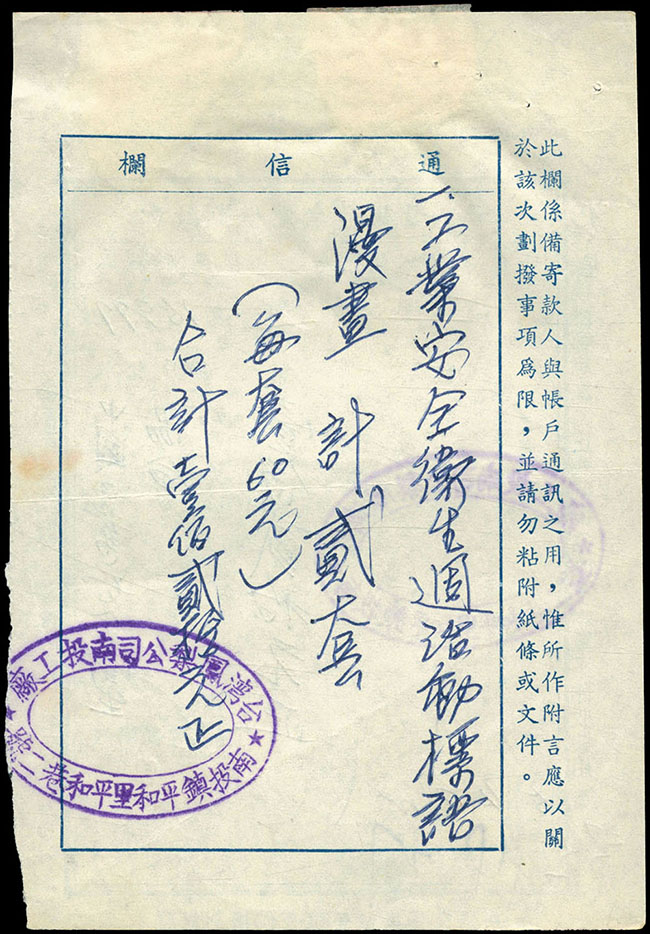 此欄係備寄款人與帳戶通訊之用，惟所作附言應以關
於該次劃撥事項爲限，並請勿粘附紙條或文件。
通信欄
一、工業安全衛生週活動標語
漫畫 計貳套
（每套60元）
合計壹佰貳拾元正
台灣鳳梨公司南投工廠
南投鎮平和里平和巷一號